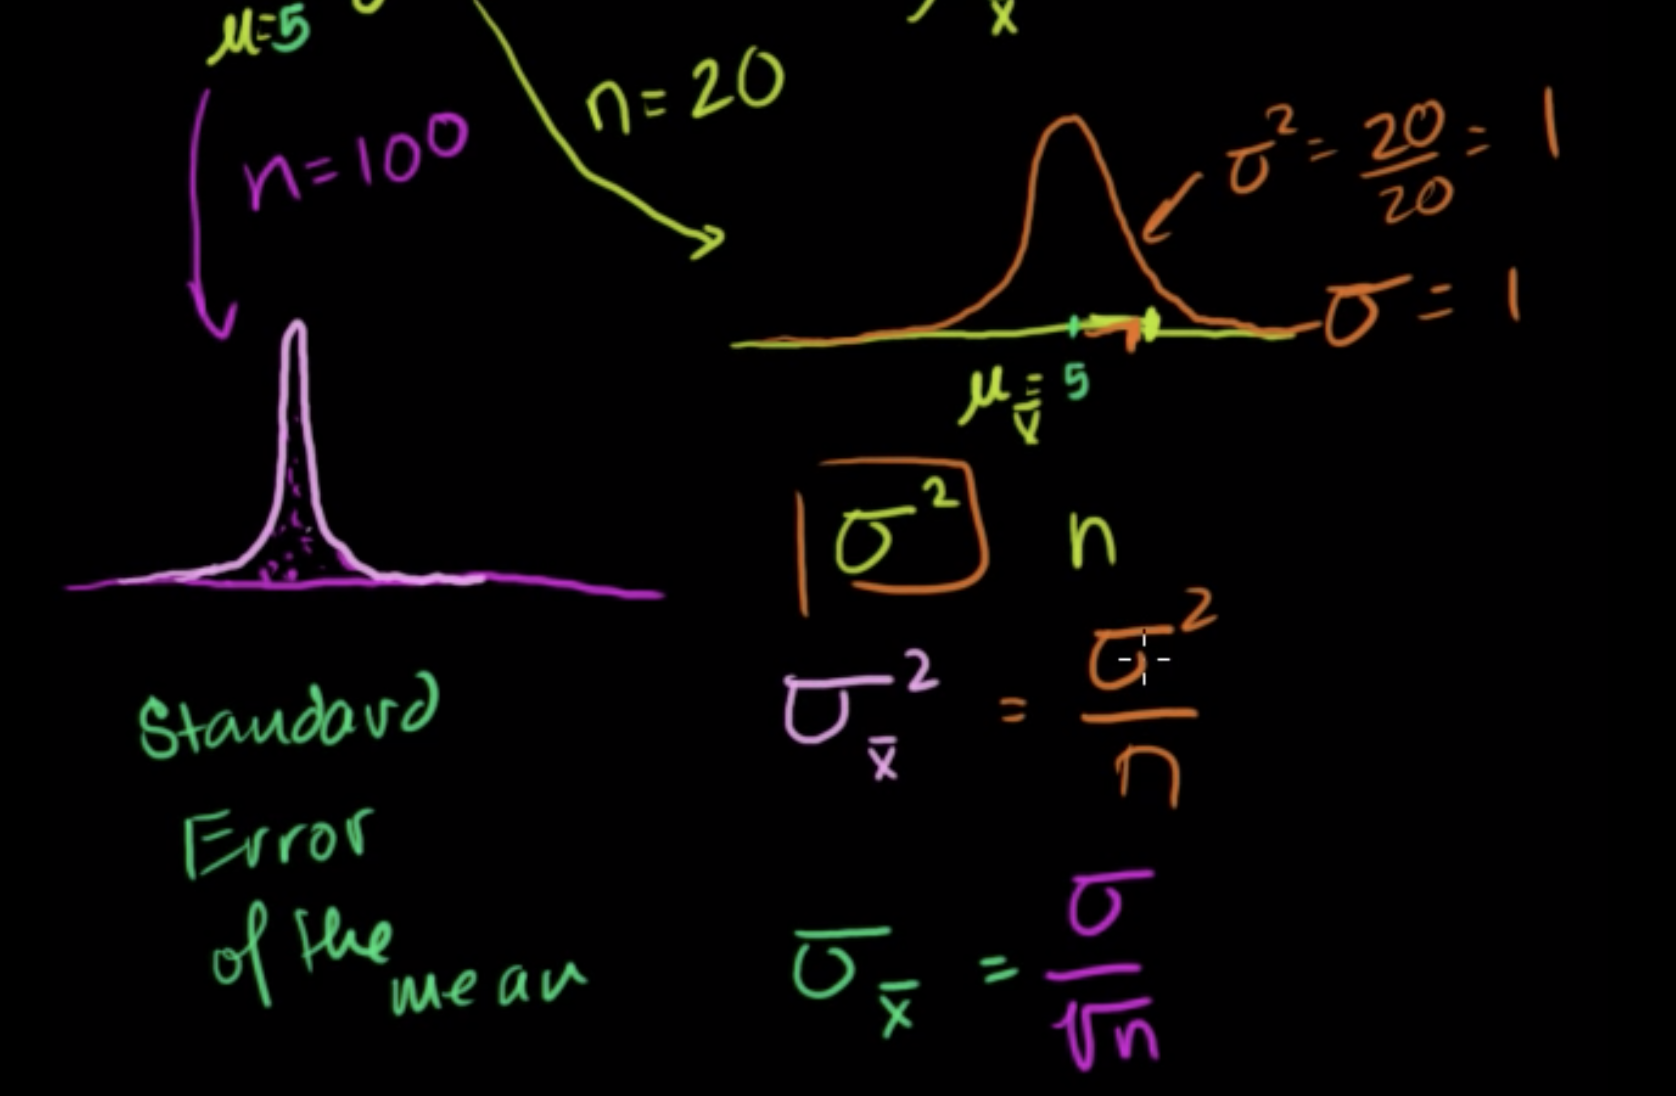 μ=5
x̄
n=20
n=100
σ² = 20/20 = 1
σ = 1
μx̄ = 5
σ² n
σ²x̄ = σ²/n
Standard
Error
of the
mean
σx̄ = σ/√n